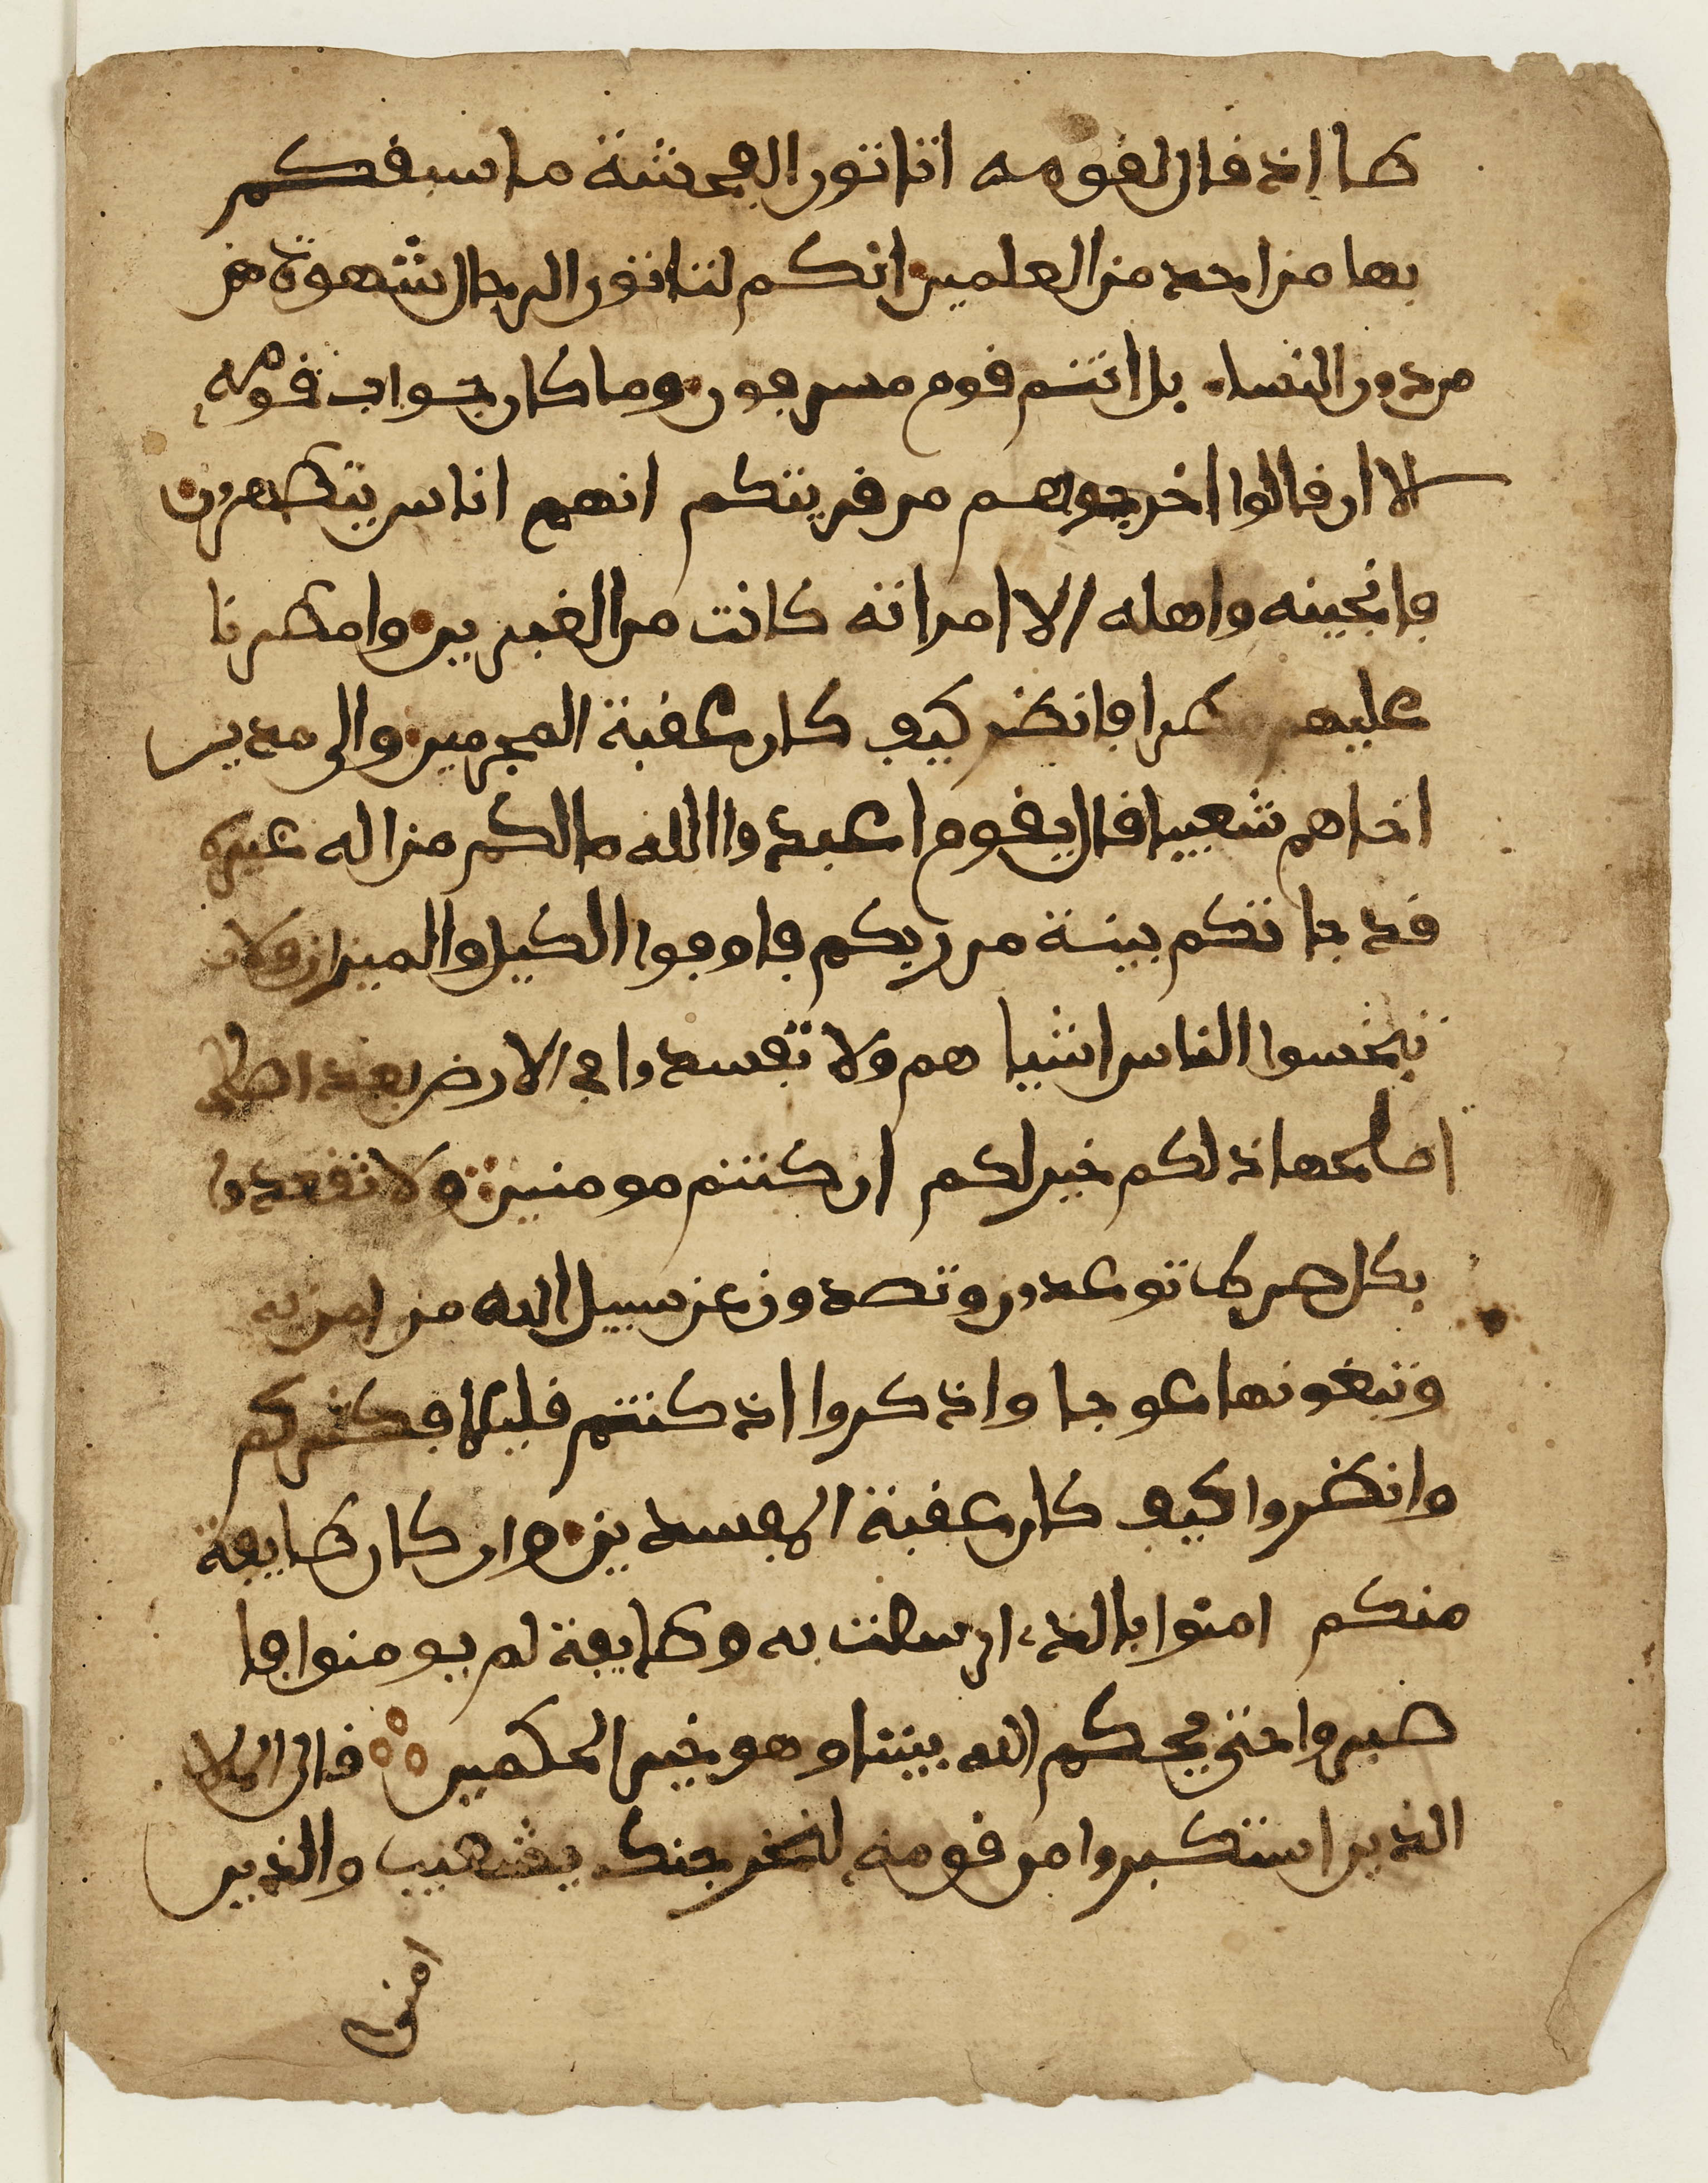 طا اذ قال لقومه اتاتون الفحشة ما سبقكم
بها من احد من العلمين انكم لتاتون الرجال شهوة من
من دون النسا بل انتم قوم مسرفون وما كان جواب قومه
الا ان قالوا اخرجوهم من قريتكم انهم اناس يتطهرون
فانجينه واهله الا امراته كانت من الغبرين وامطرنا
عليهم مطرا فانظر كيف كان عقبة المجرمين والى مدين
اخاهم شعيبا قال يقوم اعبدوا الله ما لكم من اله غيره
قد جاتكم بينة من ربكم فاوفوا الكيل والميزان ولا
تبخسوا الناس اشيا هم ولا تفسدوا في الارض بعد اصلح
اصلحها ذلكم خير لكم ان كنتم مومنين ولا تقعدوا
بكل صرط توعدون وتصدون عن سبيل الله من امن به
وتبغونها عوجا واذكروا اذ كنتم قليلا فكثركم
وانظروا كيف كان عقبة المفسدين وان كان طايفة
منكم امنوا بالذي ارسلت به وطايفة لم يومنوا فا
صبروا حتى يحكم الله بيننا وهو خير الحكمين قال الملا
الذين استكبروا من قومه لنخرجنك يشعيب والذين
امنوا